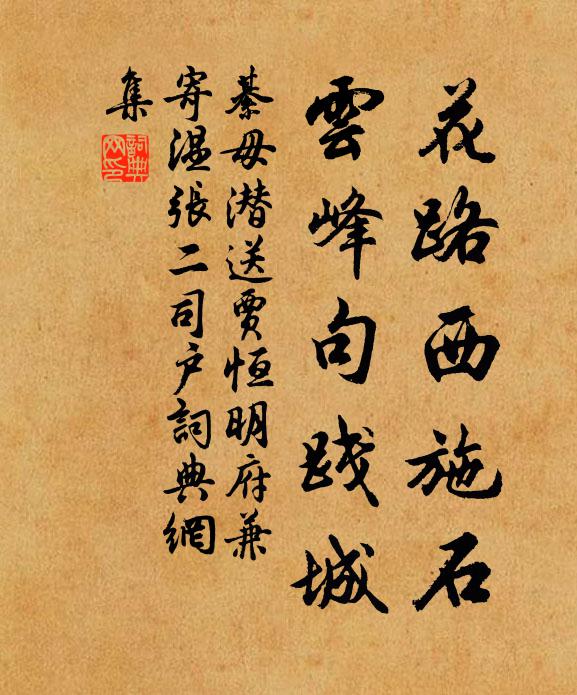 花路西施石
雲峰句踐城
綦毋潛送賈恒明府兼
寄温張二司户詞典網
集
詞典網印